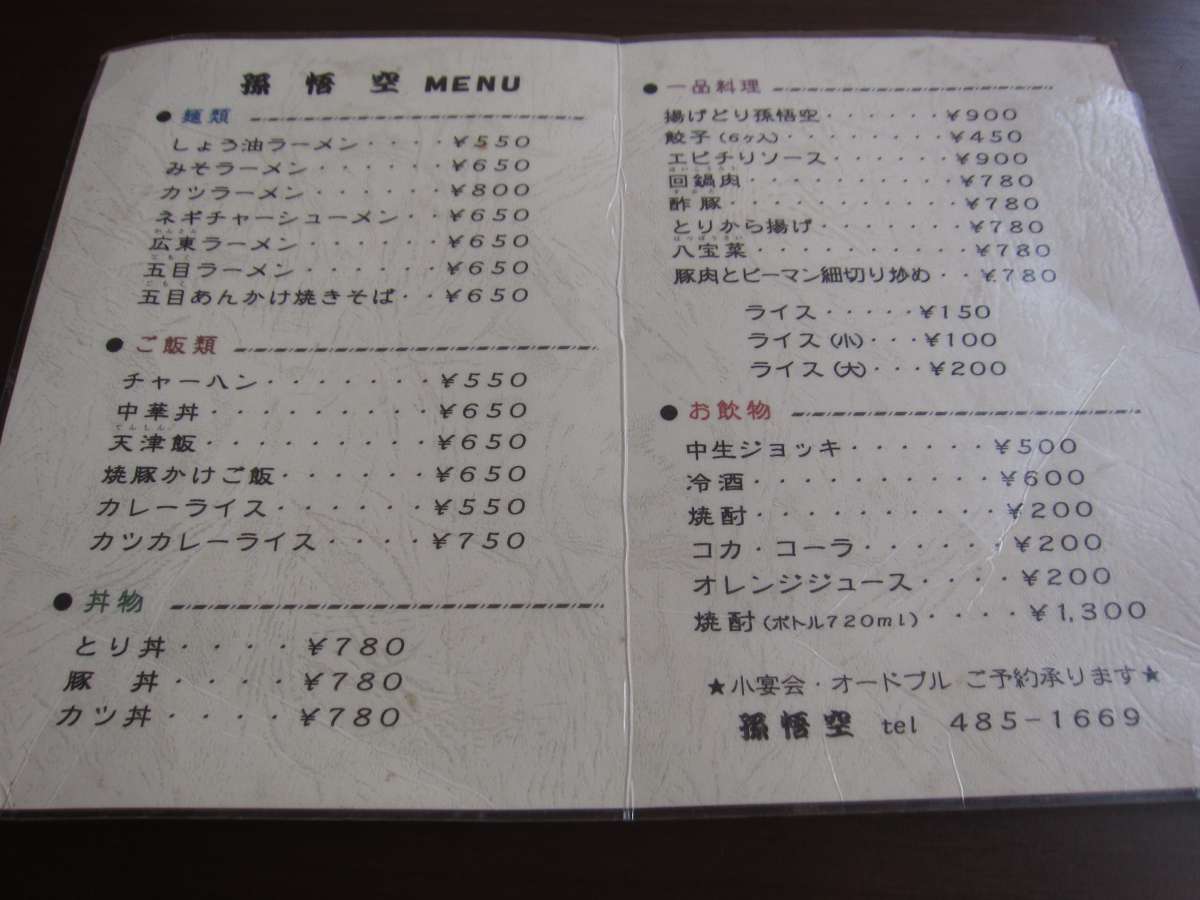 孫悟空 MENU
●麺類
しょう油ラーメン････¥550
みそラーメン･･････¥650
カツラーメン･･････¥800
ネギチャーシューメン･･¥650
かんとん
広東ラーメン･･････¥650
ごもく
五目ラーメン･･････¥650
ごもく
五目あんかけ焼きそば･･¥650
●ご飯類
チャーハン･･･････¥550
中華丼･････････¥650
てんしん
天津飯･････････¥650
焼豚かけご飯･･････¥650
カレーライス･･････¥550
カツカレーライス････¥750
●丼物
とり丼････¥780
豚 丼････¥780
カツ丼････¥780
●一品料理
揚げどり孫悟空･･････¥900
餃子(6ヶ入)････････¥450
エビチリソース･･････¥900
ほいこうろう
回鍋肉･･････････¥780
すぶた
酢豚･･･････････¥780
とりから揚げ･･･････¥780
はっぽうさい
八宝菜･･････････¥780
豚肉とピーマン細切り炒め･･¥780
ライス･････¥150
ライス(小)･･･¥100
ライス(大)･･･¥200
●お飲物
中生ジョッキ･･････¥500
冷酒･･････････¥600
焼酎･･････････¥200
コカ・コーラ･･････¥200
オレンジジュース････¥200
焼酎(ボトル720ml)････¥1,300
★小宴会・オードブル ご予約承ります★
孫悟空 tel 485-1669